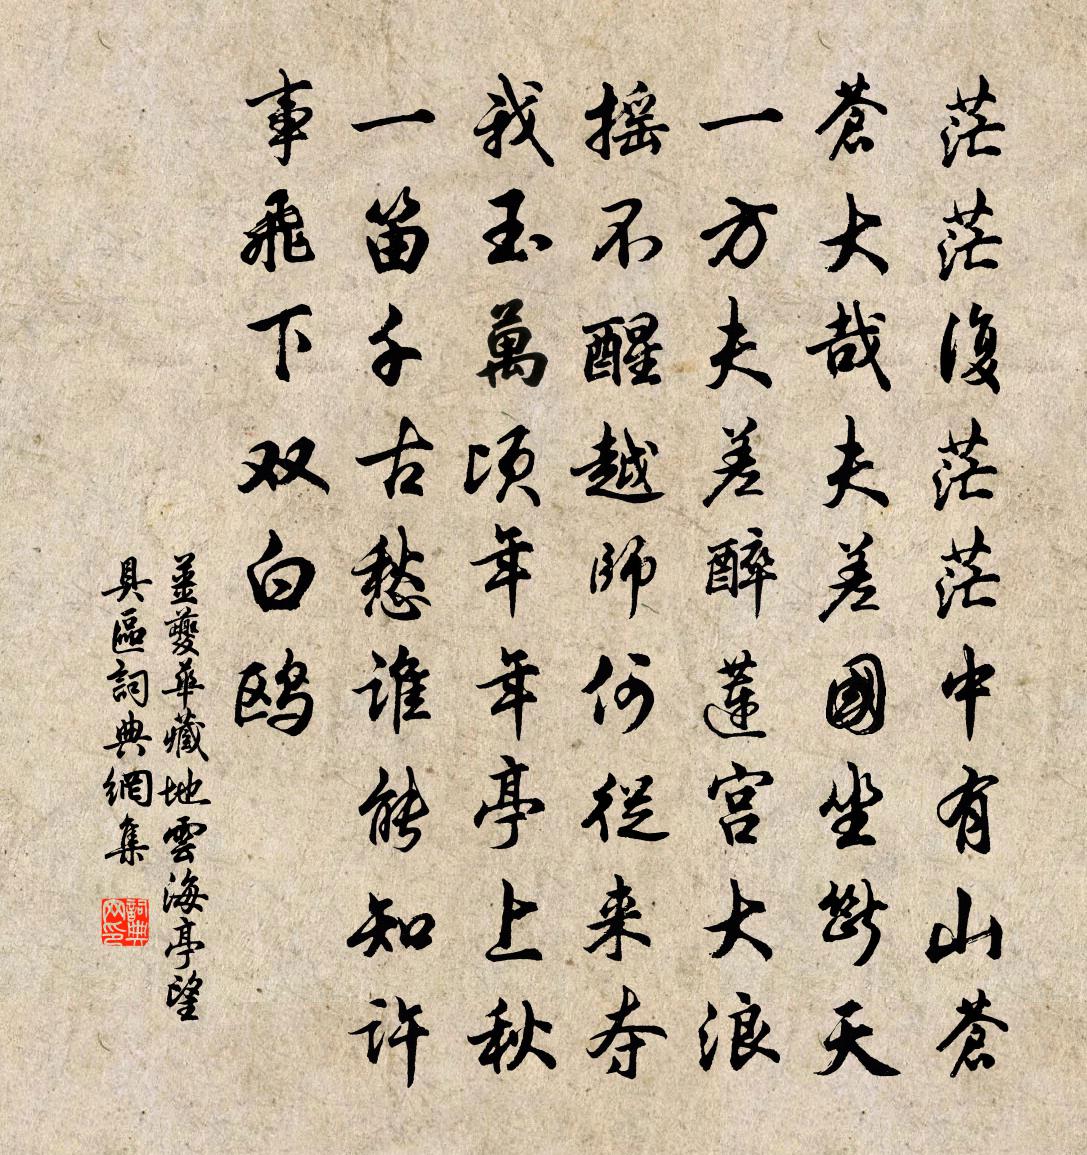 茫茫復茫茫中有山蒼
蒼大哉夫差國坐斷天
一方夫差醉蓮宮大浪
摇不醒越師何從来夺
我玉萬頃年年亭上秋
一笛千古愁誰能知許
事飛下双白鸥
姜夔華藏地雲海亭望
具區詞典網集
詞典网印